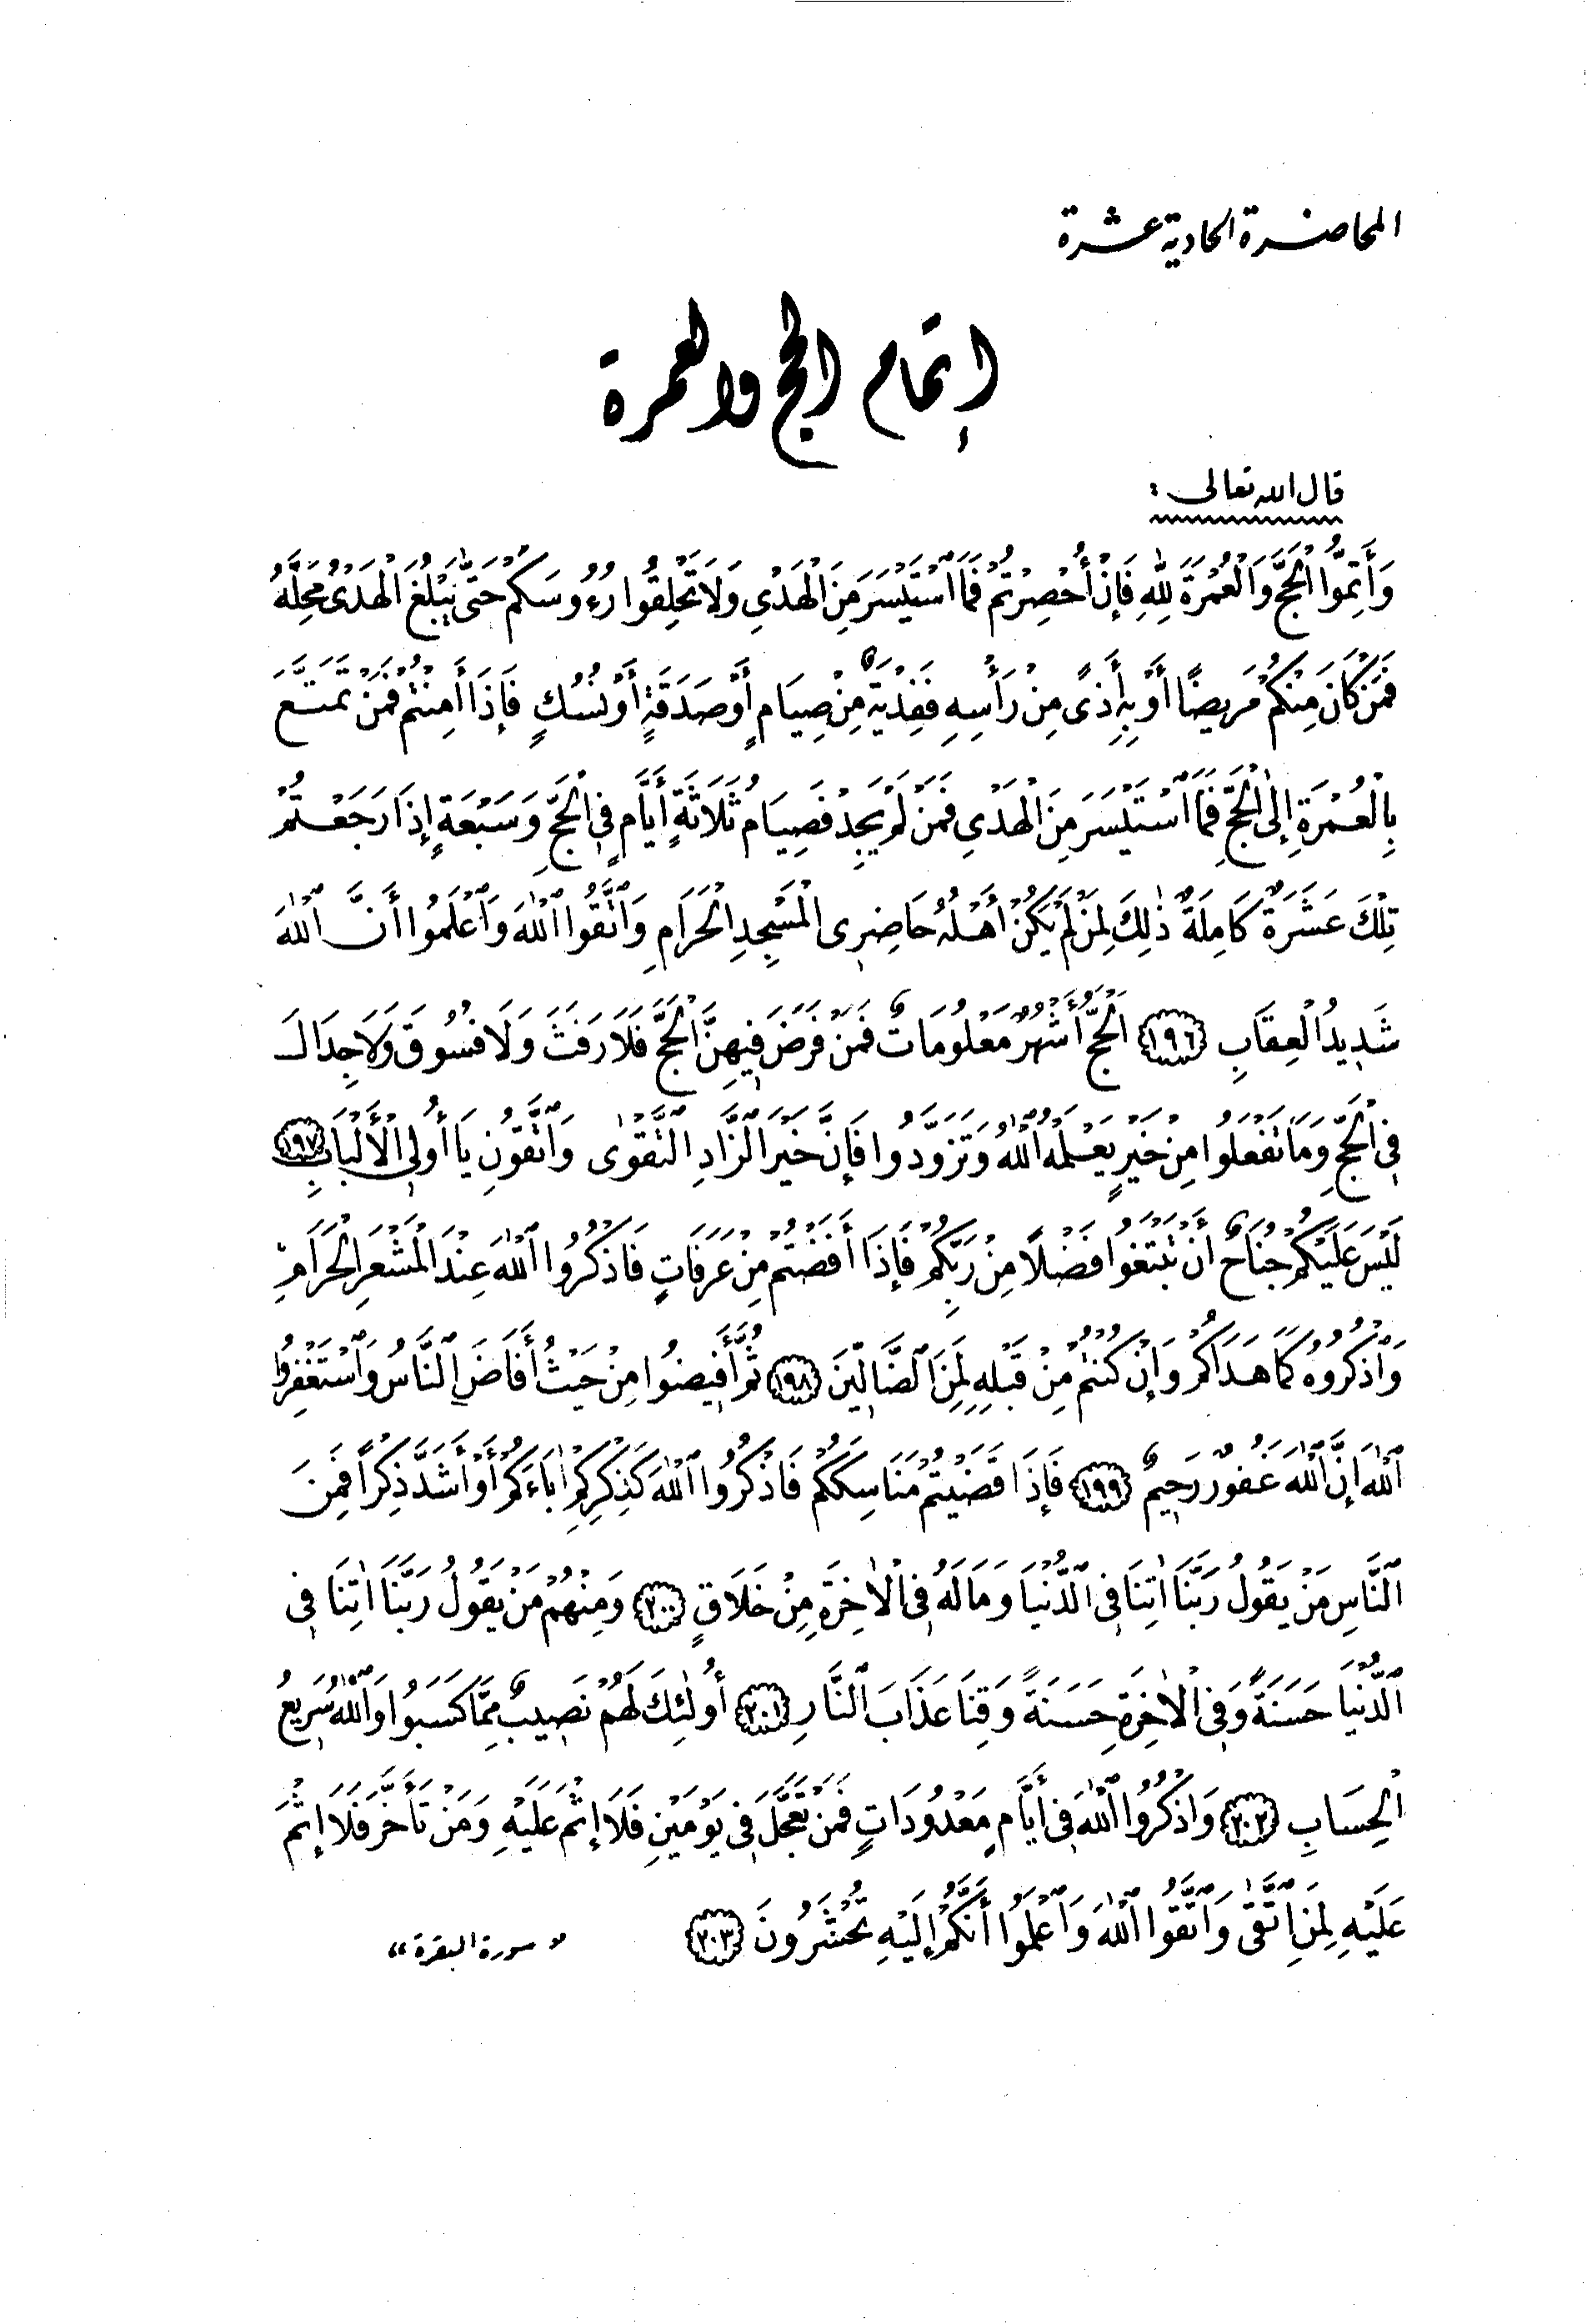 المحاضرة الحادية عشرة
إتمام الحج والعمرة
قال الله تعالى :
وَأَتِمُّوا الْحَجَّ وَالْعُمْرَةَ لِلّٰهِ فَإِنْ أُحْصِرْتُمْ فَمَا اسْتَيْسَرَ مِنَ الْهَدْيِ وَلَا تَحْلِقُوا رُءُوسَكُمْ حَتّٰى يَبْلُغَ الْهَدْىُ مَحِلَّهُ
فَمَنْ كَانَ مِنْكُمْ مَرِيضًا أَوْ بِهِ أَذىً مِنْ رَأْسِهِ فَفِدْيَةٌ مِنْ صِيَامٍ أَوْ صَدَقَةٍ أَوْ نُسُكٍ فَإِذَا أَمِنْتُمْ فَمَنْ تَمَتَّعَ
بِالْعُمْرَةِ إِلَى الْحَجِّ فَمَا اسْتَيْسَرَ مِنَ الْهَدْىِ فَمَنْ لَمْ يَجِدْ فَصِيَامُ ثَلَاثَةِ أَيَّامٍ فِي الْحَجِّ وَسَبْعَةٍ إِذَا رَجَعْتُمْ
تِلْكَ عَشَرَةٌ كَامِلَةٌ ذٰلِكَ لِمَنْ لَمْ يَكُنْ أَهْلُهُ حَاضِرِى الْمَسْجِدِ الْحَرَامِ وَاتَّقُوا اللّٰهَ وَاعْلَمُوا أَنَّ اللّٰهَ
شَدِيدُ الْعِقَابِ ﴿١٩٦﴾ الْحَجُّ أَشْهُرٌ مَعْلُومَاتٌ فَمَنْ فَرَضَ فِيهِنَّ الْحَجَّ فَلَا رَفَثَ وَلَا فُسُوقَ وَلَا جِدَالَ
فِي الْحَجِّ وَمَا تَفْعَلُوا مِنْ خَيْرٍ يَعْلَمْهُ اللّٰهُ وَتَزَوَّدُوا فَإِنَّ خَيْرَ الزَّادِ التَّقْوٰى وَاتَّقُونِ يَا أُولِي الْأَلْبَابِ ﴿١٩٧﴾
لَيْسَ عَلَيْكُمْ جُنَاحٌ أَنْ تَبْتَغُوا فَضْلًا مِنْ رَبِّكُمْ فَإِذَا أَفَضْتُمْ مِنْ عَرَفَاتٍ فَاذْكُرُوا اللّٰهَ عِنْدَ الْمَشْعَرِ الْحَرَامِ
وَاذْكُرُوهُ كَمَا هَدَاكُمْ وَإِنْ كُنْتُمْ مِنْ قَبْلِهِ لَمِنَ الضَّالِّينَ ﴿١٩٨﴾ ثُمَّ أَفِيضُوا مِنْ حَيْثُ أَفَاضَ النَّاسُ وَاسْتَغْفِرُوا
اللّٰهَ إِنَّ اللّٰهَ غَفُورٌ رَحِيمٌ ﴿١٩٩﴾ فَإِذَا قَضَيْتُمْ مَنَاسِكَكُمْ فَاذْكُرُوا اللّٰهَ كَذِكْرِكُمْ اٰبَاءَكُمْ أَوْ أَشَدَّ ذِكْرًا فَمِنَ
النَّاسِ مَنْ يَقُولُ رَبَّنَا اٰتِنَا فِي الدُّنْيَا وَمَا لَهُ فِي الْاٰخِرَةِ مِنْ خَلَاقٍ ﴿٢٠٠﴾ وَمِنْهُمْ مَنْ يَقُولُ رَبَّنَا اٰتِنَا فِي
الدُّنْيَا حَسَنَةً وَفِي الْاٰخِرَةِ حَسَنَةً وَقِنَا عَذَابَ النَّارِ ﴿٢٠١﴾ أُولٰئِكَ لَهُمْ نَصِيبٌ مِمَّا كَسَبُوا وَاللّٰهُ سَرِيعُ
الْحِسَابِ ﴿٢٠٢﴾ وَاذْكُرُوا اللّٰهَ فِي أَيَّامٍ مَعْدُودَاتٍ فَمَنْ تَعَجَّلَ فِي يَوْمَيْنِ فَلَا إِثْمَ عَلَيْهِ وَمَنْ تَأَخَّرَ فَلَا إِثْمَ
عَلَيْهِ لِمَنِ اتَّقٰى وَاتَّقُوا اللّٰهَ وَاعْلَمُوا أَنَّكُمْ إِلَيْهِ تُحْشَرُونَ ﴿٢٠٣﴾ « سورة البقرة »